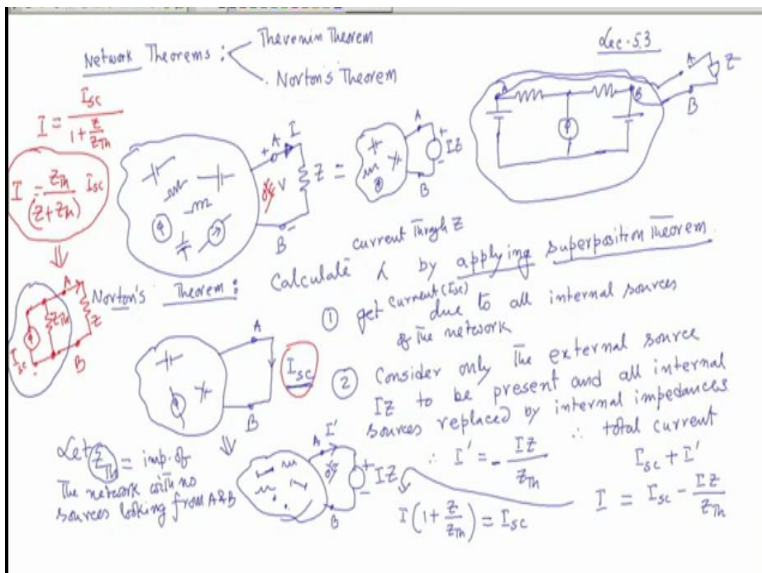 Network Theorems :
Thevenin Theorem
Norton's Theorem
Lec-53
I = I_SC / (1 + Z/Z_Th)
I = Z_Th / (Z + Z_Th) I_SC
+ A I
V Z =
B -
A + IZ -
B
A B
A Z
B
Norton's Theorem :
Calculate I by applying superposition Theorem
current Through Z
① get current (Isc) due to all internal sources
of The network
② Consider only The external source
IZ to be present and all internal
sources replaced by internal impedances
I_SC Z_Th A Z B
A
I_SC
B
Let Z_Th = imp. of
The network with no
sources looking from A&B
A I' + IZ -
B
∴ I' = - IZ / Z_Th
∴ total current
I_SC + I'
I (1 + Z/Z_Th) = I_SC
I = I_SC - IZ / Z_Th